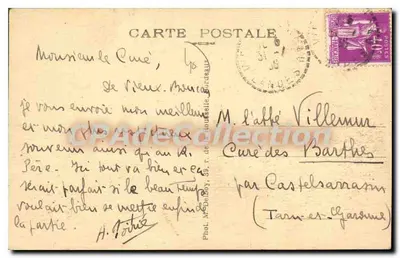 CARTE POSTALE
Monsieur le Curé,
De Vieux-
je vous envoie mon meilleur
et mon
souvenir ainsi qu'au R.
Père. Ici tout va bien et ça
serait parfait si le beau temps
voulait bien se mettre enfin de
la partie.
M. l'abbé Villemur
Curé des Barthes
par Castelsarrasin
(Tarn-et-Garonne)